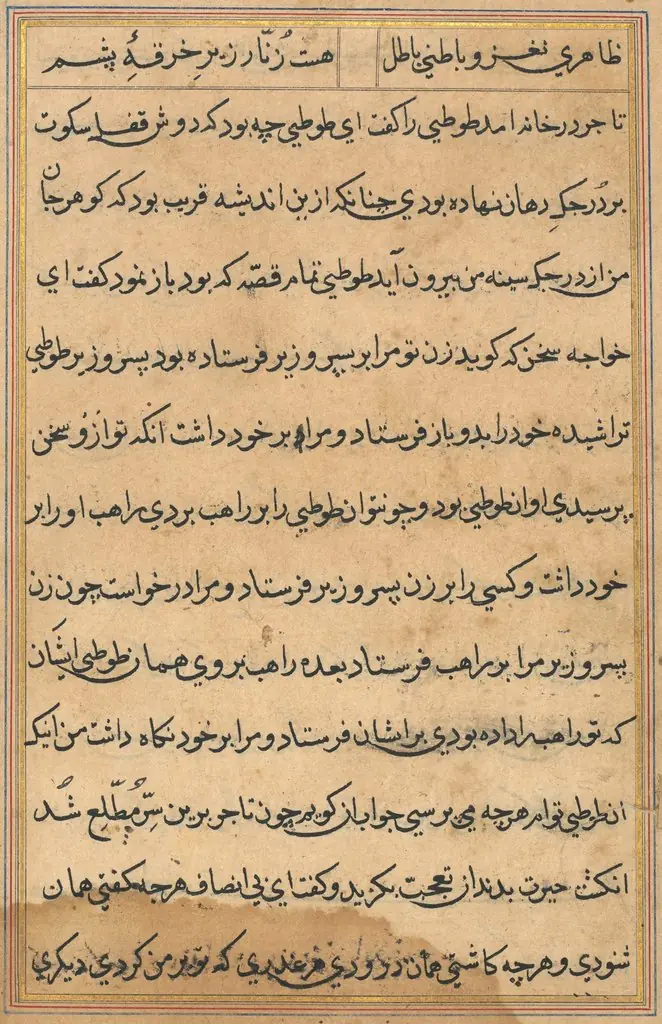 ظاهري نغز و باطني باطل هست زُنّار زیرِ خرقهٔ پشم
تاجر در خانه امد طوطي را كفت اي طوطي چه بود كه دوش قفل سكوت
بر دُرجكِ دهان نهاده بودي چنانكه ازین اندیشه قریب بود كه كوهر جان
من از درجك سینه من بیرون آید طوطي تمام قصّه كه بود باز نمود كفت اي
خواجه سخن كه كوید زن تو مرا بر پسر وزیر فرستاده بود پسر وزیر طوطي
تراشیده خود را بدو باز فرستاد و مرا بر خود داشت انكه تو ازو سخن
پرسیدي او ان طوطي بود و چون تو ان طوطي را بر راهب بردي راهب او را بر
خود داشت و كسي را بر زن پسر وزیر فرستاد و مرا درخواست چون زن
پسر وزیر مرا بر راهب فرستاد بعده راهب بروي همان طوطي ایشان
كه تو راهب را داده بودي بر ایشان فرستاد و مرا بر خود نكاه داشت من اینك
ان طوطي توام هرچه مي پرسي جواب ان كویم چون تاجر برین سِرّ مُطّلع شُد
انكشت حیرت بدندان تعجب بكزید و كفت اي بي انصاف هرچه كفتي همان
شنودي و هرچه كاشتي همان درودي كه تو بر من كردي دیكري